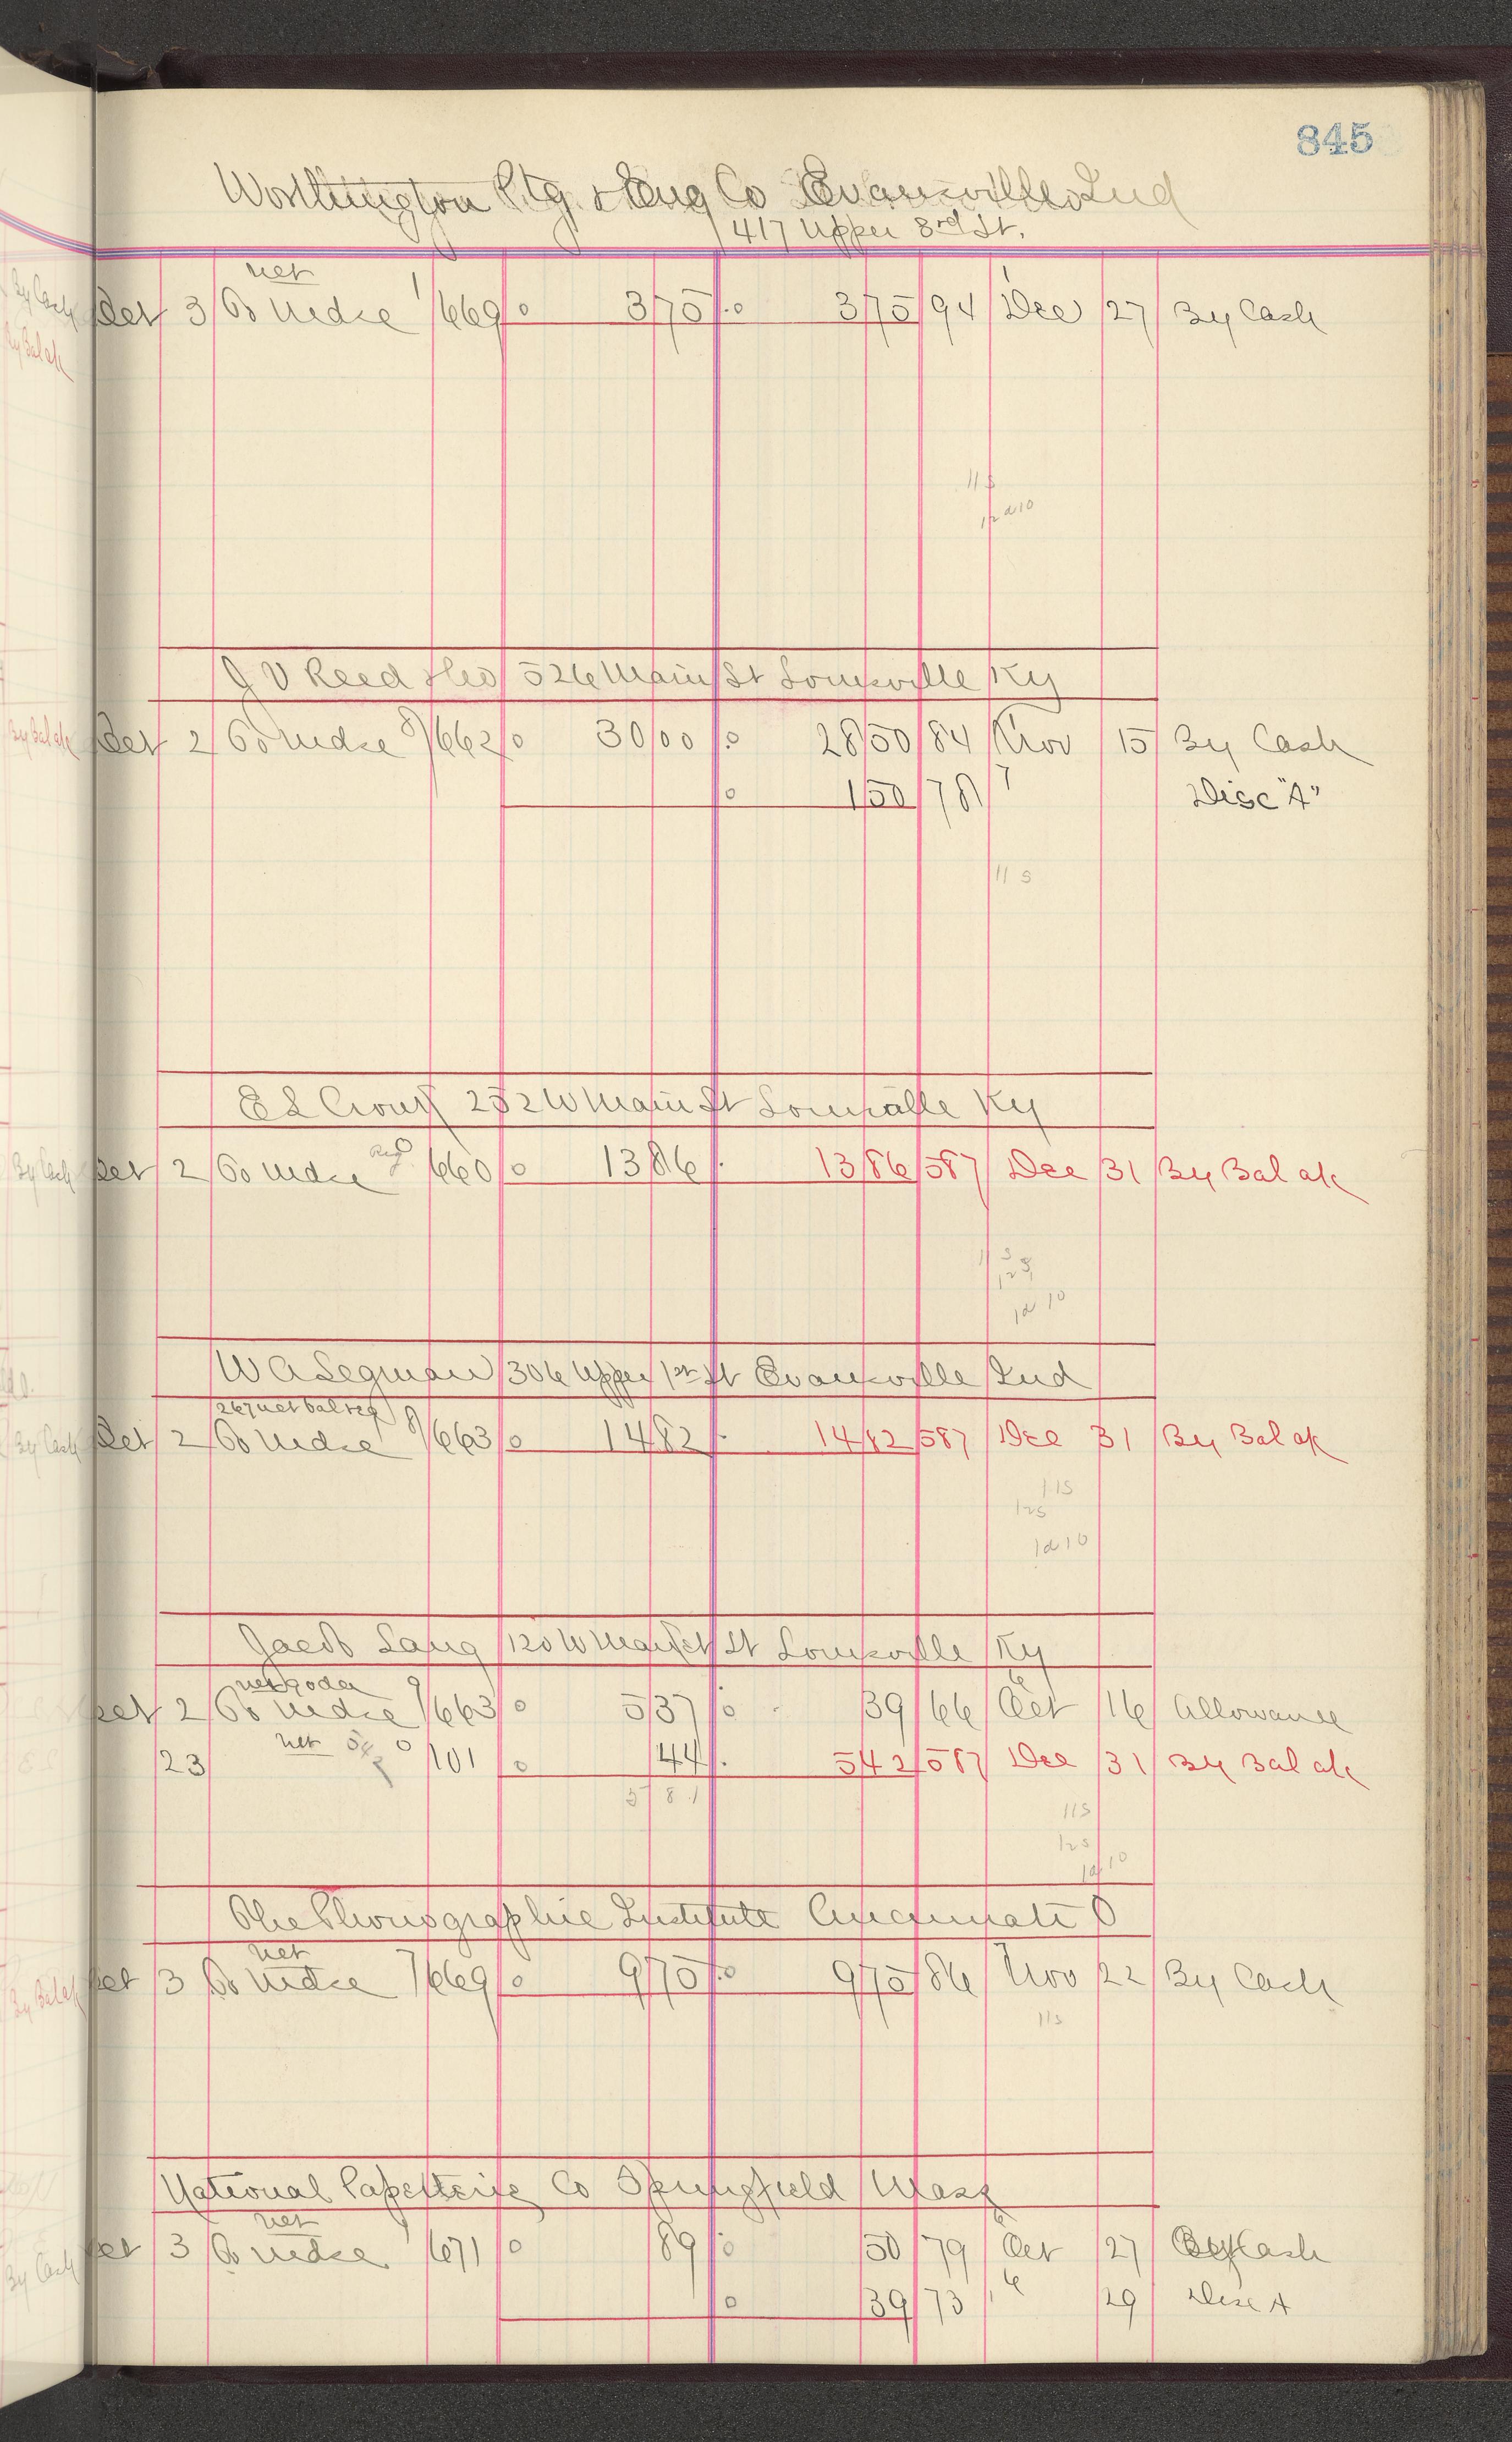 845
Worthington Ptg & Eng Co Evansville Ind
417 Upper 3rd St.
net
Oct 3 To Mdse 1/669 0 3 75 0 3 75 94 Dec 27 By Cash
11 S
12 d 10
J V Reed & Co 526 Main St Louisville Ky
Oct 2 To Mdse 8/662 0 30 00 0 28 50 84 Nov 15 By Cash
0 1 50 78 7 Disc "A"
11 S
E L 252 W Main St Louisville Ky
Oct 2 To Mdse 660 0 13 86 13 86 587 Dec 31 By Bal a/c
11 S
12 S
1d 10
W A Segman 306 Upper 1st St Evansville Ind
267 net bal reg
Oct 2 To Mdse 8/663 0 14 82 14 82 587 Dec 31 By Bal a/c
11S
12S
1d10
Jacob Lang 120 W Market St Louisville Ky
net 90 da
Oct 2 To Mdse 9/663 0 5 37 0 39 66 Oct 16 Allowance
23 net 101 0 44 5 42 587 Dec 31 By Bal a/c
5 81
11S
12S
1d10
The Phonographic Institute Cincinnati O
net
Oct 3 To Mdse 7/669 0 9 75 0 9 75 86 Nov 22 By Cash
11S
National Papeterie Co Springfield Mass
net
Oct 3 To Mdse 671 0 89 0 50 79 Oct 27 By Cash
0 39 73 6 29 Disc A